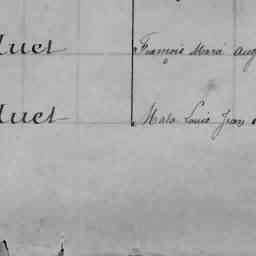 luet François Marie Aug
luet Malo Louis Jean